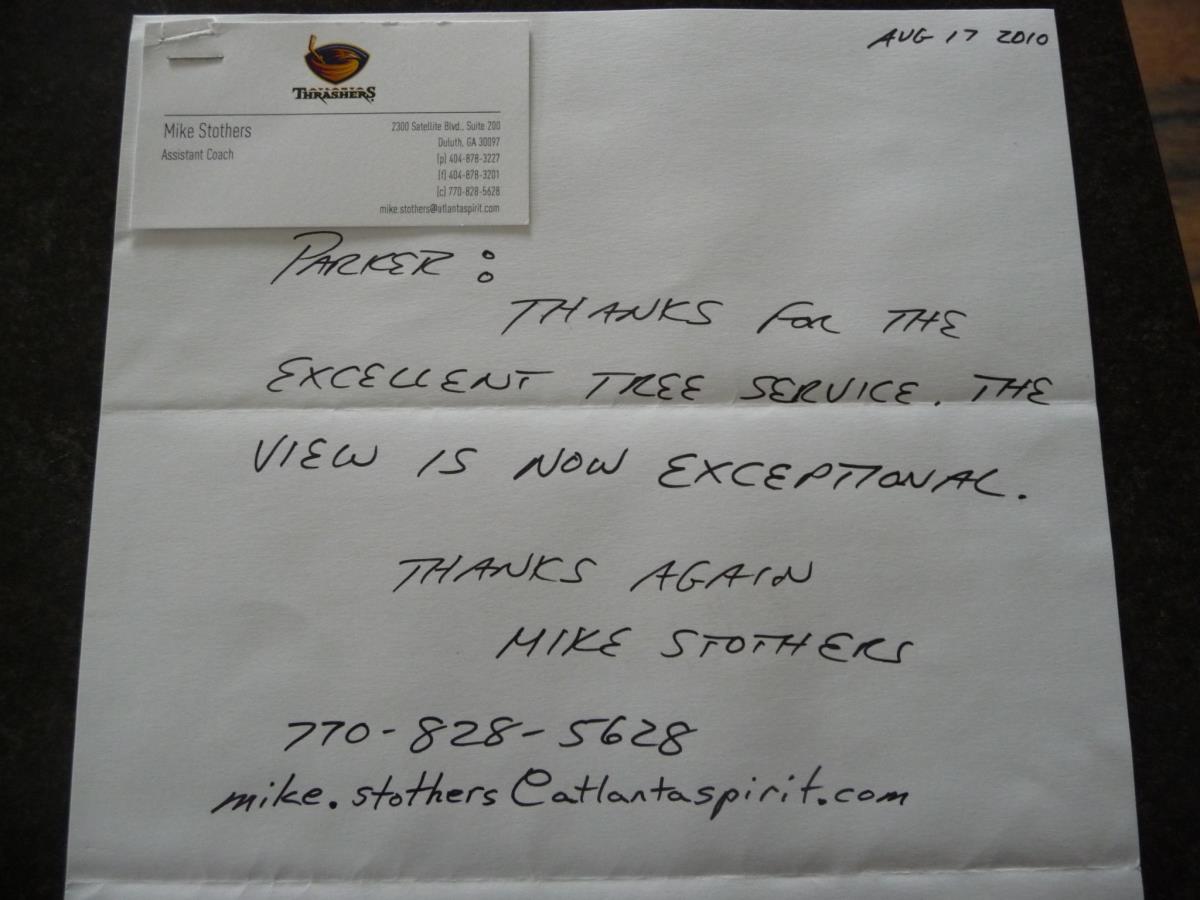 ATLANTA
THRASHERS
Mike Stothers
Assistant Coach
2300 Satellite Blvd., Suite 200
Duluth, GA 30097
(p) 404-878-3227
(f) 404-878-3201
(c) 770-828-5628
mike.stothers@atlantaspirit.com
AUG 17 2010
PARKER:
THANKS FOR THE
EXCELLENT TREE SERVICE. THE
VIEW IS NOW EXCEPTIONAL.
THANKS AGAIN
MIKE STOTHERS
770-828-5628
mike.stothers@atlantaspirit.com